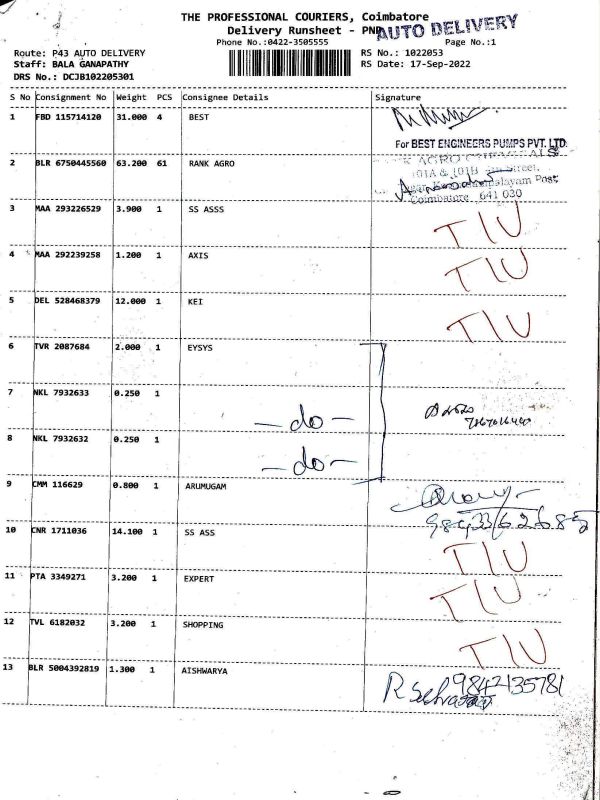 THE PROFESSIONAL COURIERS, Coimbatore
Delivery Runsheet - PNP
AUTO DELIVERY
Phone No.:0422-3505555
Page No.:1
Route: P43 AUTO DELIVERY
RS No.: 1022053
Staff: BALA GANAPATHY
RS Date: 17-Sep-2022
DRS No.: DCJB102205301
S No Consignment No Weight PCS Consignee Details Signature
1 FBD 115714120 31.000 4 BEST
For BEST ENGINEERS PUMPS PVT. LTD.
2 BLR 6750445560 63.200 61 RANK AGRO
101A & 101B Street,
Post
Coimbatore 641 030
3 MAA 293226529 3.900 1 SS ASSS T/U
4 MAA 292239258 1.200 1 AXIS T/U
5 DEL 528468379 12.000 1 KEI T/U
6 TVR 2087684 2.000 1 EYSYS
7 NKL 7932633 0.250 1
-do-
8 NKL 7932632 0.250 1
-do-
9 CMM 116629 0.800 1 ARUMUGAM
10 CNR 1711036 14.100 1 SS ASS T/U
11 PTA 3349271 3.200 1 EXPERT T/U
12 TVL 6182032 3.200 1 SHOPPING T/U
13 BLR 5004392819 1.300 1 AISHWARYA
9842135781